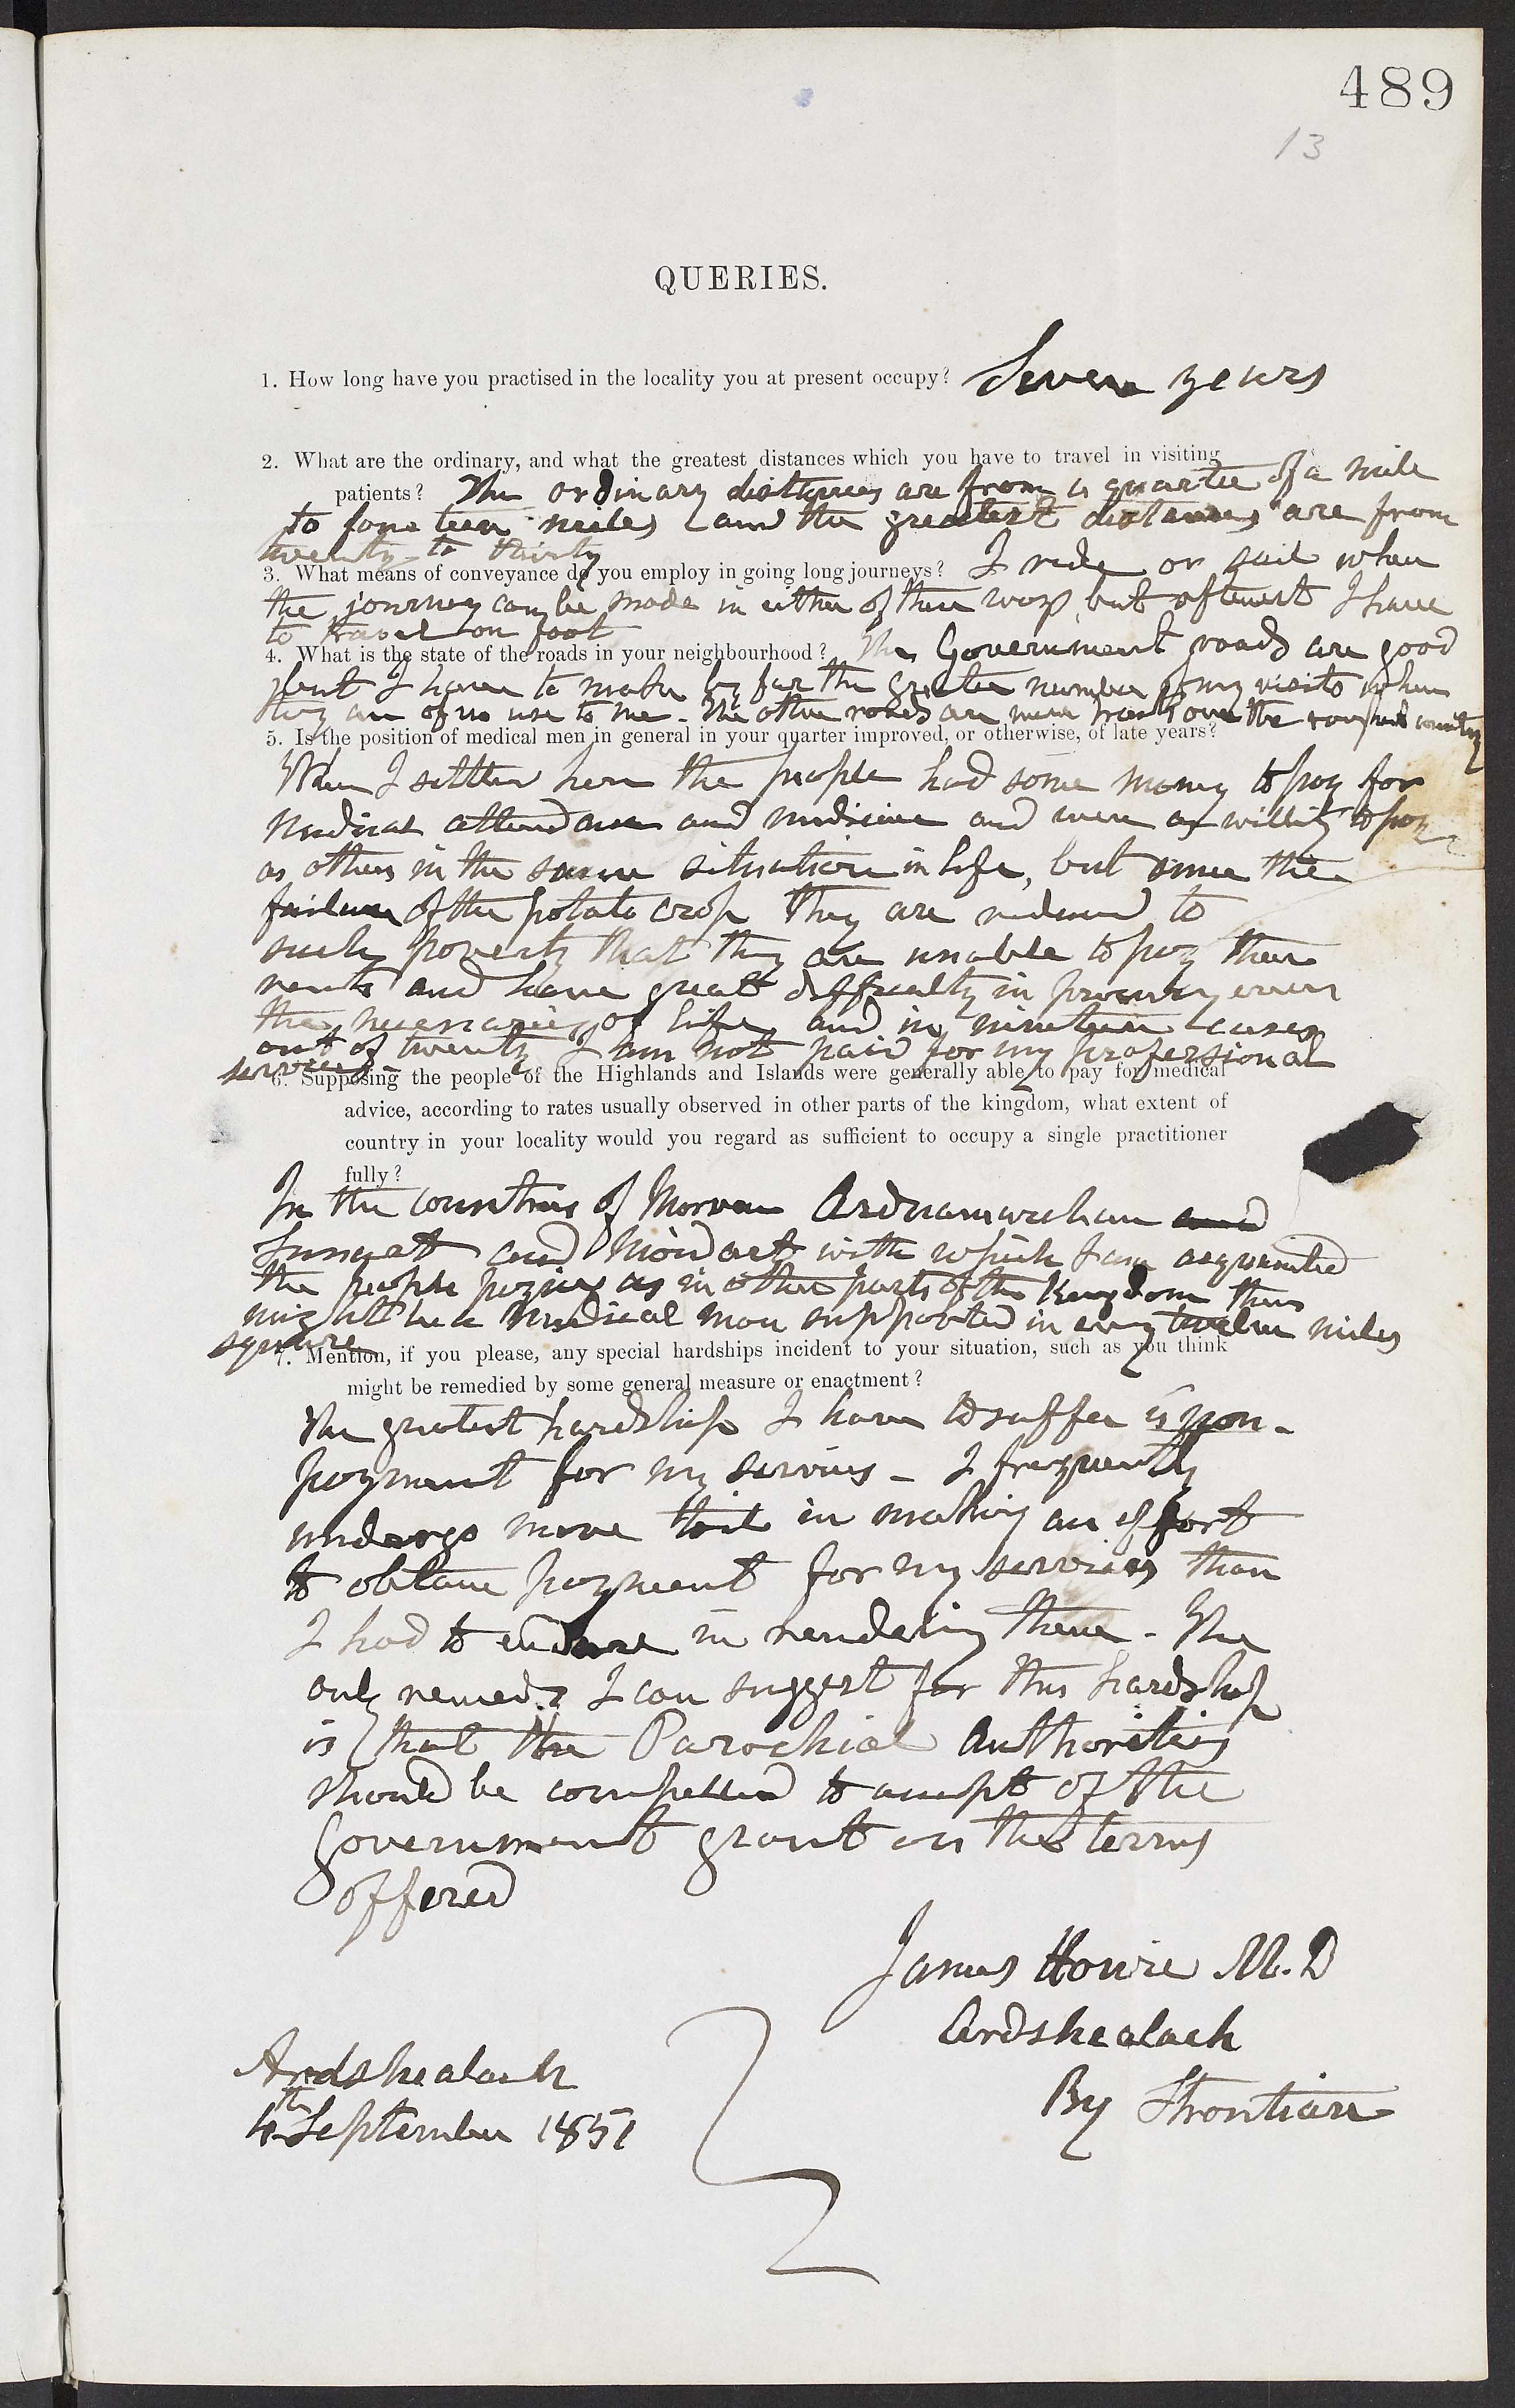 489
13
QUERIES.
1. How long have you practised in the locality you at present occupy? Seven years
2. What are the ordinary, and what the greatest distances which you have to travel in visiting
patients? The ordinary distances are from a quarter of a mile
to fourteen miles and the greatest distances are from
twenty to thirty
3. What means of conveyance do you employ in going long journeys? I ride or sail when
the journey can be made in either of these ways, but oftenest I have
to travel on foot
4. What is the state of the roads in your neighbourhood? The Government roads are good
but I have to make by far the greater number of my visits when
they are of no use to me - The other roads are mere tracks over the country
5. Is the position of medical men in general in your quarter improved, or otherwise, of late years?
When I settled here the people had some money to pay for
medical attendance and medicine and were as willing to pay
as others in the same situation in life, but since the
failure of the potato crop they are reduced to
such poverty that they are unable to pay their
rents and have great difficulty in procuring even
the necessaries of life and in nineteen cases
out of twenty I am not paid for my professional
services -
6. Supposing the people of the Highlands and Islands were generally able to pay for medical
advice, according to rates usually observed in other parts of the kingdom, what extent of
country in your locality would you regard as sufficient to occupy a single practitioner
fully?
In the countries of Morven Ardnamurchan and
Sunart and Moidart with which I am acquainted
the people paying as in other parts of the Kingdom there
might be a medical man supported in every twelve miles
square
7. Mention, if you please, any special hardships incident to your situation, such as you think
might be remedied by some general measure or enactment?
The greatest hardship I have to suffer is non-
payment for my services - I frequently
undergo more toil in making an effort
to obtain payment for my services than
I had to endure in rendering them - The
only remedy I can suggest for this hardship
is that the Parochial Authorities
should be compelled to accept of the
Government grant on the terms
offered
James Howie M.D
Ardshealach
By Strontian
Ardshealach
4th September 1851